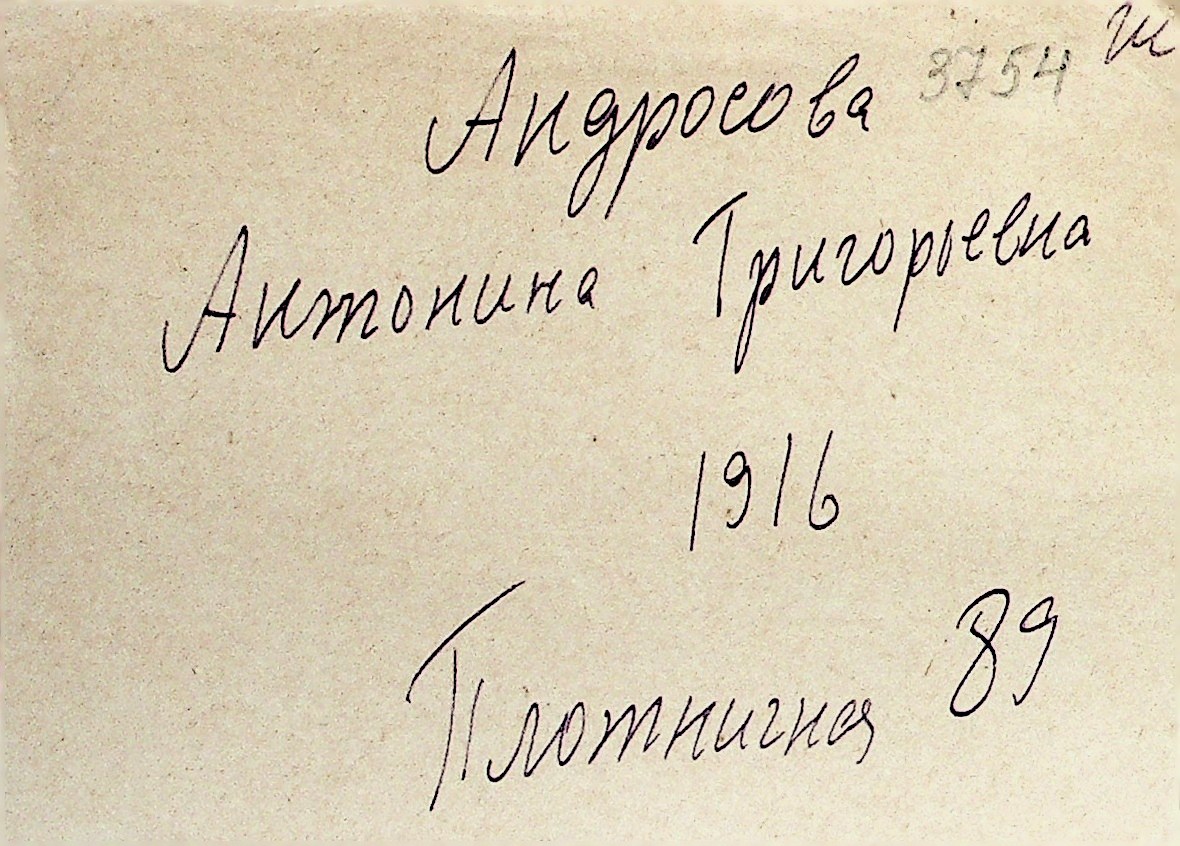 Андросова 3754 ж
Антонина Григорьевна
1916
Плотничная 89